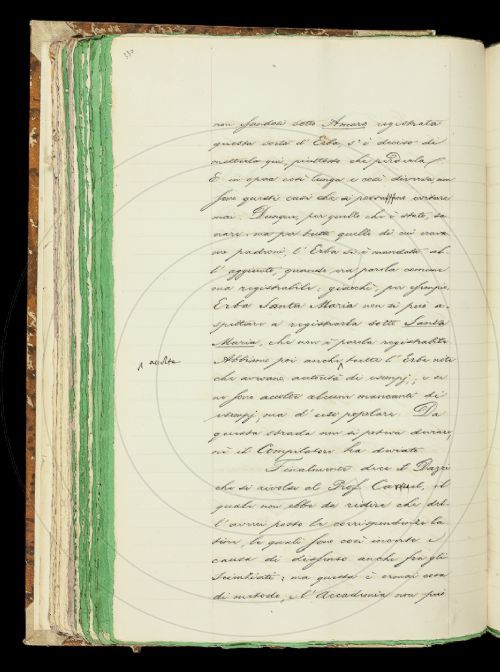 330
non facendosi sotto Amaro registrata
questa sorta d'Erba, s'è deciso di
metterla qui, piuttosto che
E in opera così lunga e così diversa, non
sono questi casi che si possano evitare
mai. Dunque, per quello che è stato,
ma per tutte quelle di cui erava
mo padroni, l'Erba si è mandata al
l'aggiunto, quando era parola comune
ma registrabile; giacchè, per esempio,
Erba Santa Maria non si può a
spettare a registrarla sotto Santa
Maria, che non è parola registrabile
Abbiamo poi anche tutte l'Erbe note
accolte
che avevano autorità di esempj; e ci
sono accolte alcune mancanti di
esempj, ma d'uso popolare. Da
questa strada non si poteva
nè il Compilatore ha deviato.
Finalmente dice il Dazzi
che si rivolse al Prof. Caruel, il
quale non ebbe da ridire che del
l'avere posto le corrispondenze la
tine, le quali sono così incerte e
causa di dissenso anche fra gli
Scienziati; ma questa è ormai cosa
di metodo, e l'Accademia non può